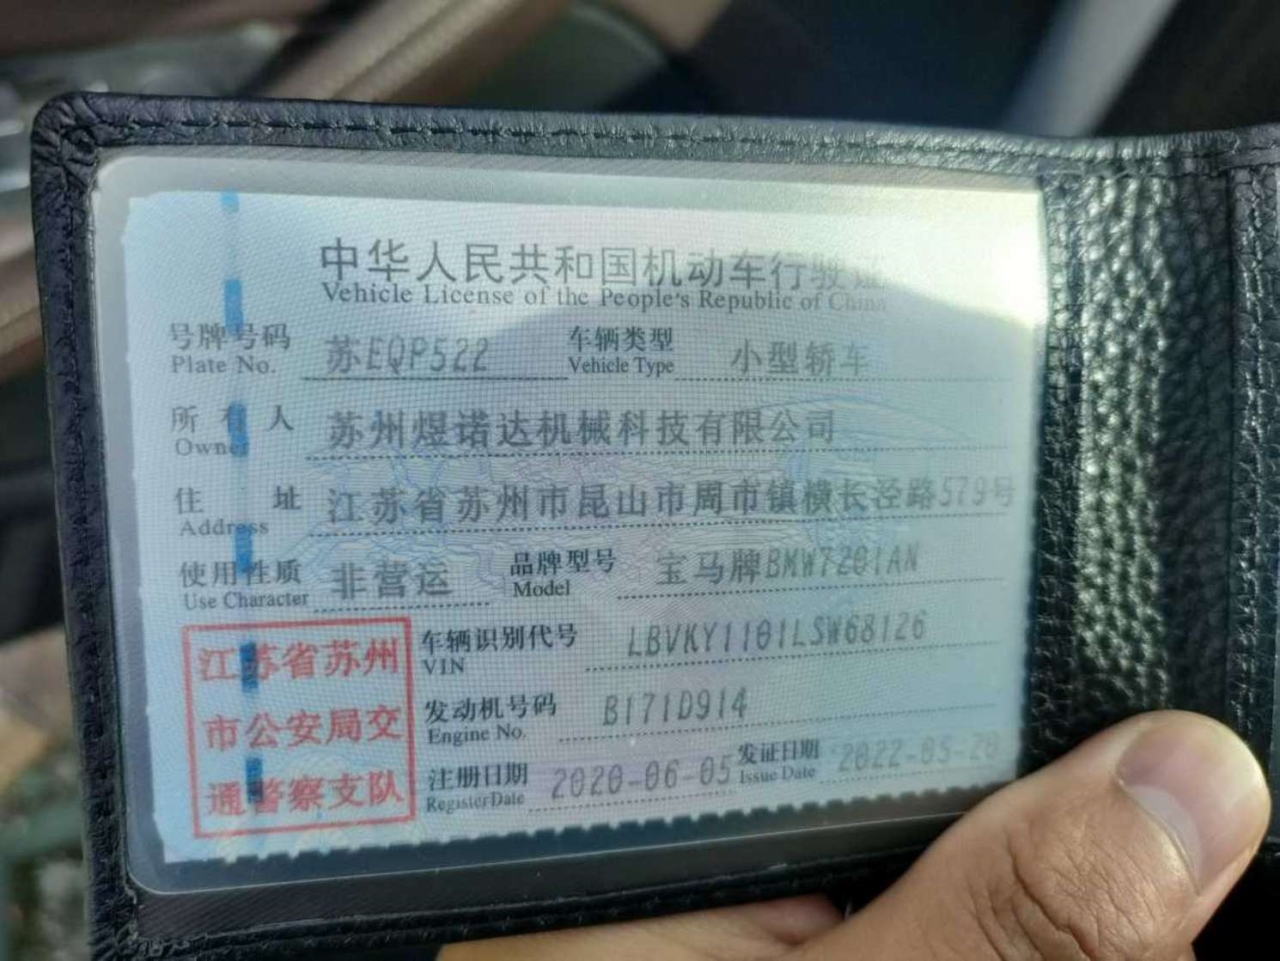 中华人民共和国机动车行驶证
Vehicle License of the People's Republic of China
号牌号码 Plate No. 苏EQP522 车辆类型 Vehicle Type 小型轿车
所有人 Owner 苏州煜诺达机械科技有限公司
住址 Address 江苏省苏州市昆山市周市镇横长泾路579号
使用性质 Use Character 非营运 品牌型号 Model 宝马牌BMW7201AN
车辆识别代号 VIN LBVKY1101LSW68126
发动机号码 Engine No. B171D914
注册日期 Register Date 2020-06-05 发证日期 Issue Date 2022-05-20
江苏省苏州
市公安局交
通警察支队